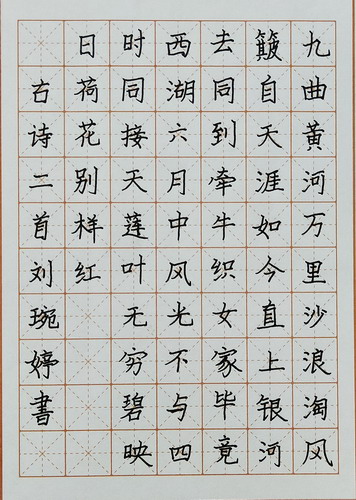 九曲黄河万里沙浪淘风
簸自天涯如今直上银河
去同到牵牛织女家毕竟
西湖六月中风光不与四
时同接天莲叶无穷碧映
日荷花别样红
右诗二首刘琬婷書